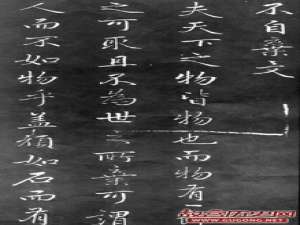 不自棄文
夫天下之物皆物也而物有
之可取且不為世之所棄可謂
人而不如物乎蓋頑如石而有
WWW.GUGONG.NET